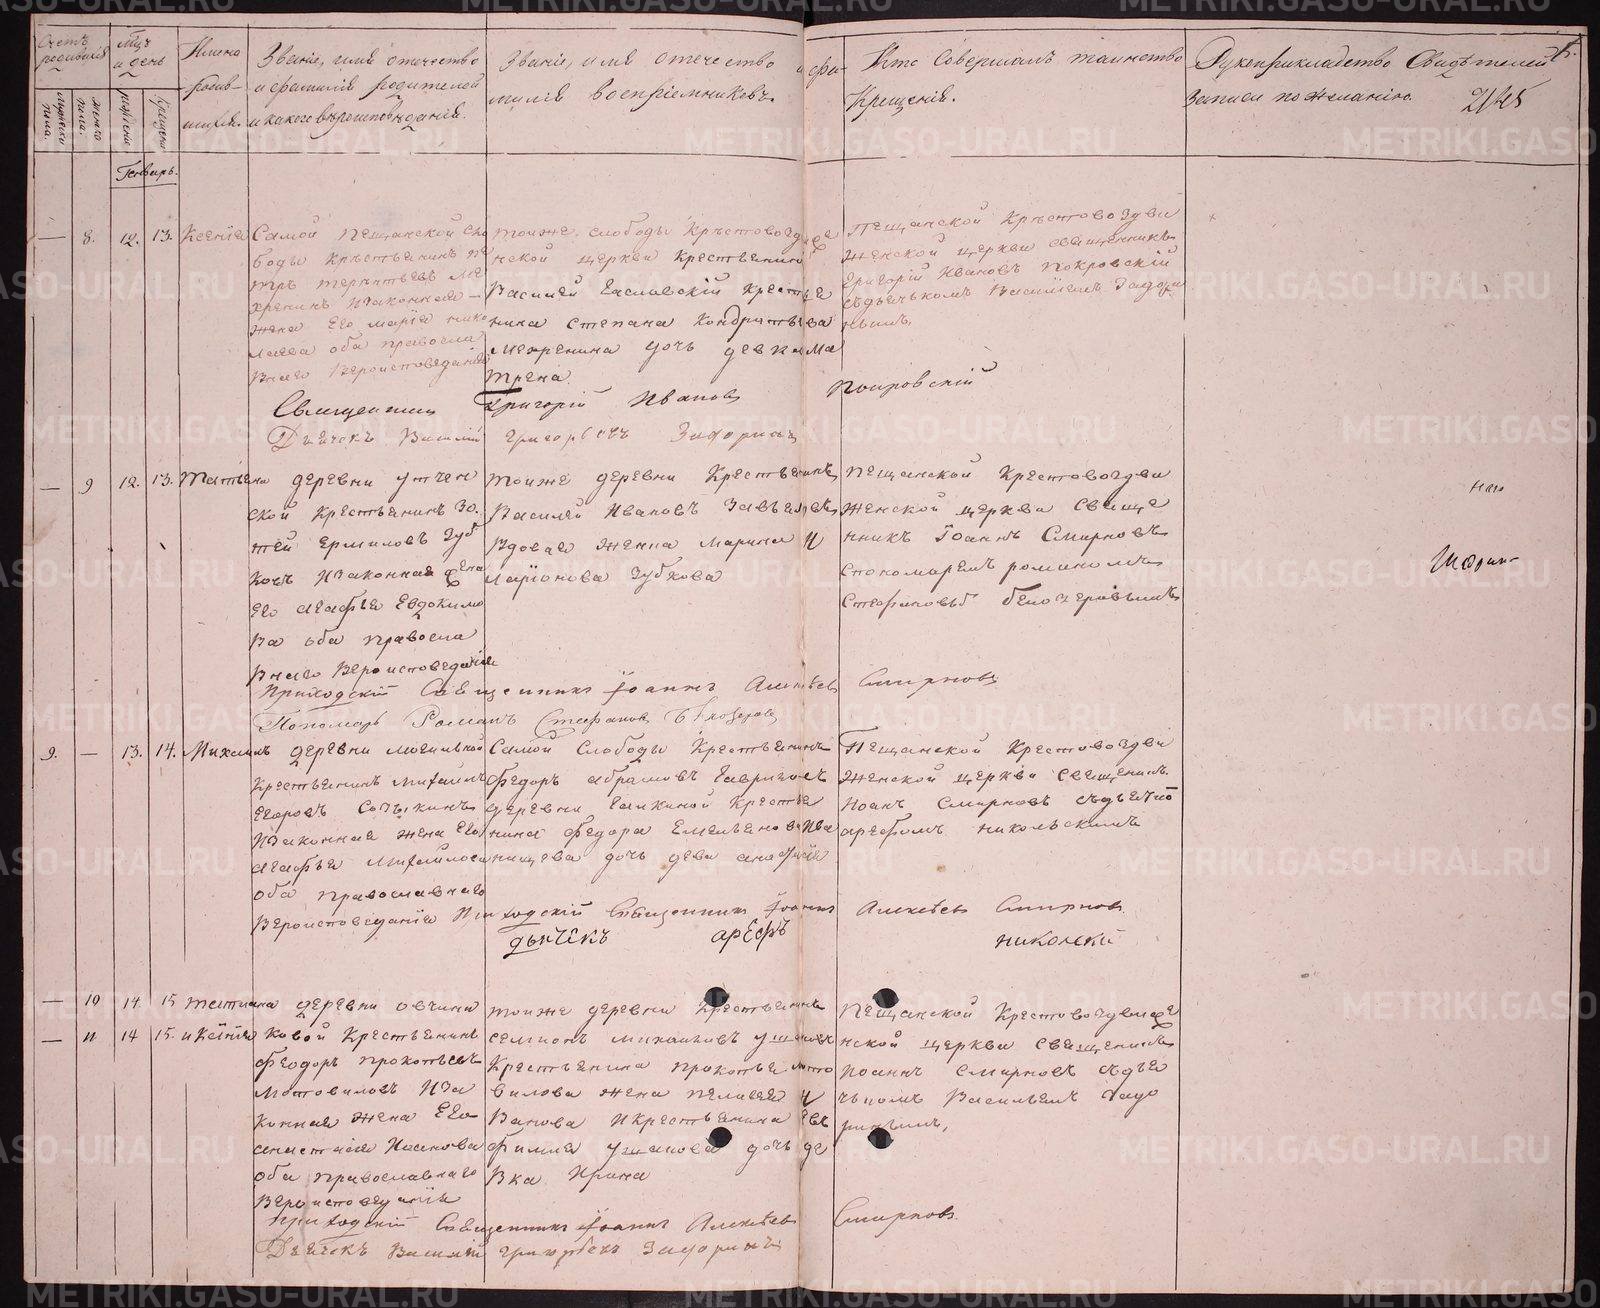 Счетъ родившихся
Мужеска пола.
Женска пола.
Мѣц. и день
рожденія
Крещенія
Имена родив-
шихся.
Званіе, имя отечество
и фамилія родителей
и какого вѣроисповѣданія.
Званіе, имя отечество и фа-
милія воспріемниковъ.
Кто совершалъ таинство
Крещенія.
Рукоприкладство Свидѣтелей
записи по желанію.
245
Генварь.
— 8. 12. 13. Ксенія
Самой Пещанской сло
боды крестьянинъ Пе
тръ Терентьевъ Ме
хренинъ изаконная
жена Его Марія Нико
лаева оба правосла
внаго Вероисповеданія
тойже слободы Крестовоздвиже
нской церкви крестьянинъ
Василей Гаславскій кресть
нина Степана Кондратьева
Мехренина дочь девка Ма
трена.
Пещанской Крестовоздви
женской церкви священникъ
Григорій Ивановъ Покровскій
съдьячькомъ Васильемъ Задори
нымъ,
Священникъ Григорій Ивановъ Покровскій
Дьячекъ Василій Григорьевъ Задоринъ
— 9 12. 13. Татьяна
деревни Утчен
ской Крестьянинъ Зо.
тей Ермиловъ Зуб
ковъ изаконная жена
Его Агафья Евдокимо
ва оба правосла
внаго Вероисповеданія
тойже деревни Крестьянинъ
Василей Ивановъ Завьяловъ
вдовая жена Марина И
ларіонова Зубкова
Пещанской Крестовоздви
женской церкви Свяще
нникъ Іоаннъ Смирновъ
спономаремъ романомъ
Стефановымъ белозеровымъ
Приходскій Священникъ Іоаннъ Алексѣевъ Смирновъ
Пономарь Романъ Стефановъ Бѣлозеровъ
9. — 13. 14. Михаилъ
деревни могильной
Крестьянинъ Михаилъ
Егоровъ Сочыкинъ
изаконная жена Его
Агафья Михайлова
оба православнаго
Вероисповеданія
Самой слободы Крестьянинъ
Федоръ Абрамовъ Гавриловъ
деревни Галкиной Крестья
нина Федора Емельянова Ива
нищева дочь дева
Пещанской Крестовоздви
женской церкви Священникъ
Иоанъ Смирновъ съдьячко
арефомъ никольскимъ
Приходскій Священникъ Іоаннъ Алексѣевъ Смирновъ
дьячекъ арефъ николский
— 10 14 15 татиана
— 11 14 15. и Ксѣнія
деревни овчини
ковой Крестьянинъ
Феодоръ прокопьевъ
Мотовиловъ иза
конная жена Его
анастасія Иванова
оба православнаго
Вероисповеданія
тойже деревни Крестьянинъ
семионъ михаиловъ ушаковъ
Крестьянина прокопья мото
вилова жена пелагея И
ванова икрестьянина Ев
фимия ушакова дочь де
вка Ирина
Пещанской Крестовоздвиже
нской церкви Священникъ
Иоаннъ Смирновъ съдья
чькомъ Васильемъ Задо
ринымъ,
Приходскій Священникъ Іоаннъ Алексѣевъ Смирновъ.
Дьячекъ Василій Григорьевъ Задоринъ
METRIKI.GASO-URAL.RU